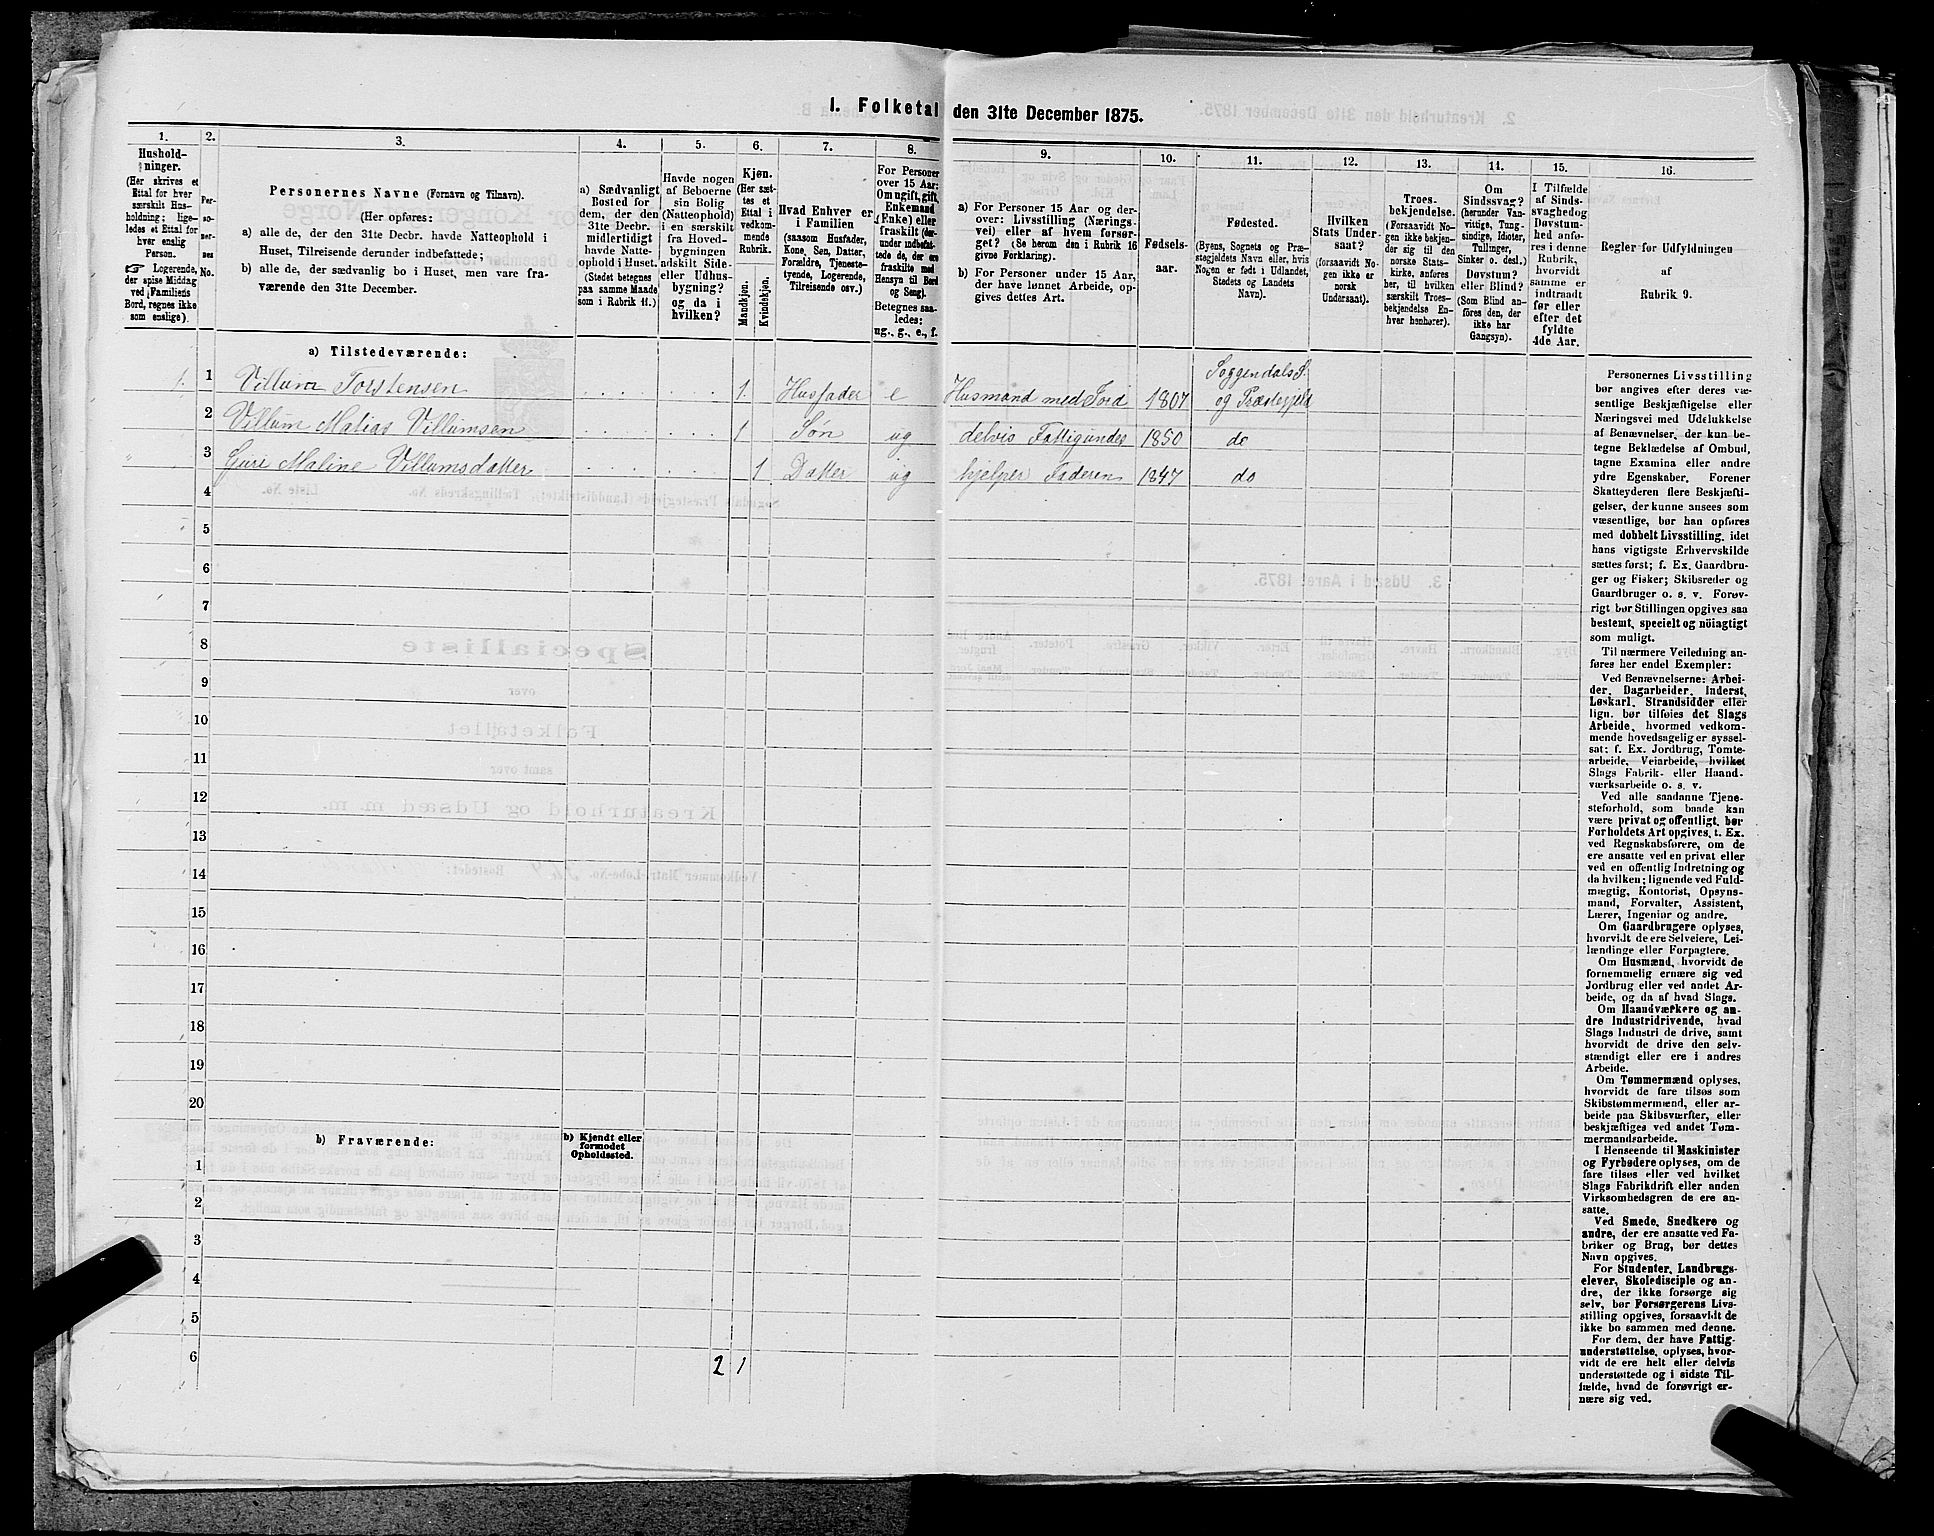 1. Folketal den 31te December 1875.
1. 2. 3. 4. 5. 6. 7. 8. 9. 10. 11. 12. 13. 14. 15. 16.
Hushold-
ninger.
(Her skrives et
Ettal for hver
særskilt Hus-
holdning; lige-
ledes et Ettal for
hver enslig
Person.
☞ Logerende,
der spise Middag
ved Familiens
Bord, regnes ikke
som enslige).
Per-
so-
ner-
nes
No.
Personernes Navne (Fornavn og Tilnavn).
(Her opføres:
a) alle de, der den 31te Decbr. havde Natteophold i
Huset, Tilreisende derunder indbefattede;
b) alle de, der sædvanlig bo i Huset, men vare fra-
værende den 31te December.
a) Sædvanligt
Bosted for
dem, der den
31te Decbr.
midlertidigt
havde Natte-
ophold i Huset.
(Stedet betegnes
paa samme Maade
som i Rubrik 11.)
Havde nogen
af Beboerne
sin Bolig
(Natteophold)
i en særskilt
fra Hoved-
bygningen
adskilt Side-
eller Udhus-
bygning?
og da i
hvilken?
Kjøn.
(Her sæt-
tes et
Ettal i
vedkom-
mende
Rubrik.
Mandkjøn.
Kvindekjøn.
Hvad Enhver er
i Familien
(saasom Husfader,
Kone, Søn, Datter,
Forældre, Tjeneste-
tyende, Logerende,
Tilreisende osv.)
For Personer
over 15 Aar:
Om ugift, gift,
Enkemand
(Enke) eller
fraskilt (der-
under indbefat-
tede de, der ere
fraskilte med
Hensyn til Bord
og Seng).
Betegnes saa-
ledes:
ug., g., e., f.
a) For Personer 15 Aar og der-
over: Livsstilling (Nærings-
vei) eller af hvem forsør-
get? (Se herom den i Rubrik 16
givne Forklaring).
b) For Personer under 15 Aar,
der have lønnet Arbeide, op-
gives dettes Art.
Fødsels-
aar.
Fødested.
(Byens, Sognets og Præ-
stegjeldets Navn eller, hvis
Nogen er født i Udlandet,
Stedets og Landets
Navn).
Hvilken
Stats Under-
saat?
(forsaavidt No-
gen ikke er
norsk
Undersaat).
Troes-
bekjendelse.
(Forsaavidt No-
gen ikke bekjen-
der sig til den
norske Stats-
kirke, anføres
her, til hvilken
særskilt Troes-
bekjendelse En-
hver henhører).
Om
Sindssvag?
(herunder Van-
vittige, Tung-
sindige, Idioter,
Tullinger,
Sinker o. desl.)
Døvstum?
eller Blind?
(Som Blind an-
føres den, der
ikke har
Gangsyn).
I Tilfælde
af Sinds-
svaghed og
Døvstum-
hed anfø-
res i denne
Rubrik,
hvorvidt
samme er
indtraadt
før eller
efter det
fyldte
4de Aar.
Regler for Udfyldningen
af
Rubrik 9.
a) Tilstedeværende:
1. 1 Villum Torstensen 1. Husfader e Husmand med Jord 1807 Soggendals S.
og Præstegjeld
2 Villum Matias Villumsen 1 Søn ug delvis Fattigundes 1850 do
" 3 Guri Maline Villumsdatter 1 Datter ug hjelper Faderen 1847 do
4
5
6
7
8
9
10
11
12
13
14
15
16
17
18
19
20
b) Fraværende:
b) Kjendt eller
formodet
Opholdssted.
1
2
3
4
5
6
2 1
Personernes Livsstilling
bør angives efter deres væ-
sentlige Beskjæftigelse eller
Næringsvei med Udelukkelse
af Benævnelser, der kun be-
tegne Beklædelse af Ombud,
tagne Examina eller andre
ydre Egenskaber. Forener
Skatteyderen flere Beskjæfti-
gelser, der kunne ansees som
væsentlige, bør han opføres
med dobbelt Livsstilling, idet
hans vigtigste Erhvervskilde
sættes først; f. Ex. Gaardbru-
ger og Fisker; Skibsreder og
Gaardbruger o. s. v. Forøv-
rigt bør Stillingen opgives saa
bestemt, specielt og nøiagtigt
som muligt.
Til nærmere Veiledning an-
føres her endel Exempler:
Ved Benævnelserne: Arbei-
der, Dagarbeider, Inderst,
Løskarl, Strandsidder eller
lign. bør tilføies det Slags
Arbeide, hvormed vedkom-
mende hovedsagelig er syssel-
sat: f. Ex. Jordbrug, Tomte-
arbeide, Veiarbeide, hvilket
Slags Fabrik- eller Haand-
værksarbeide o. s. v.
Ved alle saadanne Tjene-
steforhold, som baade kan
være privat og offentligt, bør
Forholdets Art opgives, t. Ex.
ved Regnskabsførere, om de
ere ansatte ved en privat eller
ved en offentlig Indretning og
da hvilken; lignende ved Fuld-
mægtig, Kontorist, Opsyns-
mand, Forvalter, Assistent,
Lærer, Ingeniør og andre.
Om Gaardbrugere oplyses,
hvorvidt de ere Selveiere, Lei-
lændinge eller Forpagtere.
Om Husmænd, hvorvidt de
fornemmelig ernære sig ved
Jordbrug eller ved andet Ar-
beide, og da af hvad Slags.
Om Haandværkere og an-
dre Industridrivende, hvad
Slags Industri de drive, samt
hvorvidt de drive den selv-
stændigt eller ere i andres
Arbeide.
Om Tømmermænd oplyses,
hvorvidt de fare tilsøs som
Skibstømmermænd, eller ar-
beide paa Skibsværfter, eller
beskjæftiges ved andet Tøm-
mermandsarbeide.
I Henseende til Maskinister
og Fyrbødere oplyses, om de
fare tilsøs eller ved hvilket
Slags Fabrikdrift eller anden
Virksomhedsgren de ere an-
satte.
Ved Smede, Snedkere og
andre, der ere ansatte ved Fa-
briker og Brug, bør dettes
Navn opgives.
For Studenter, Landbrugs-
elever, Skoledisciple og an-
dre, der ikke forsørge sig
selv, bør Forsørgerens Livs-
stilling opgives, forsaavidt de
ikke bo sammen med denne.
For dem, der have Fattig-
understøttelse, oplyses, hvor-
vidt de ere helt eller delvis
understøttede og i sidste Til-
fælde, hvad de forøvrigt er-
nære sig ved.